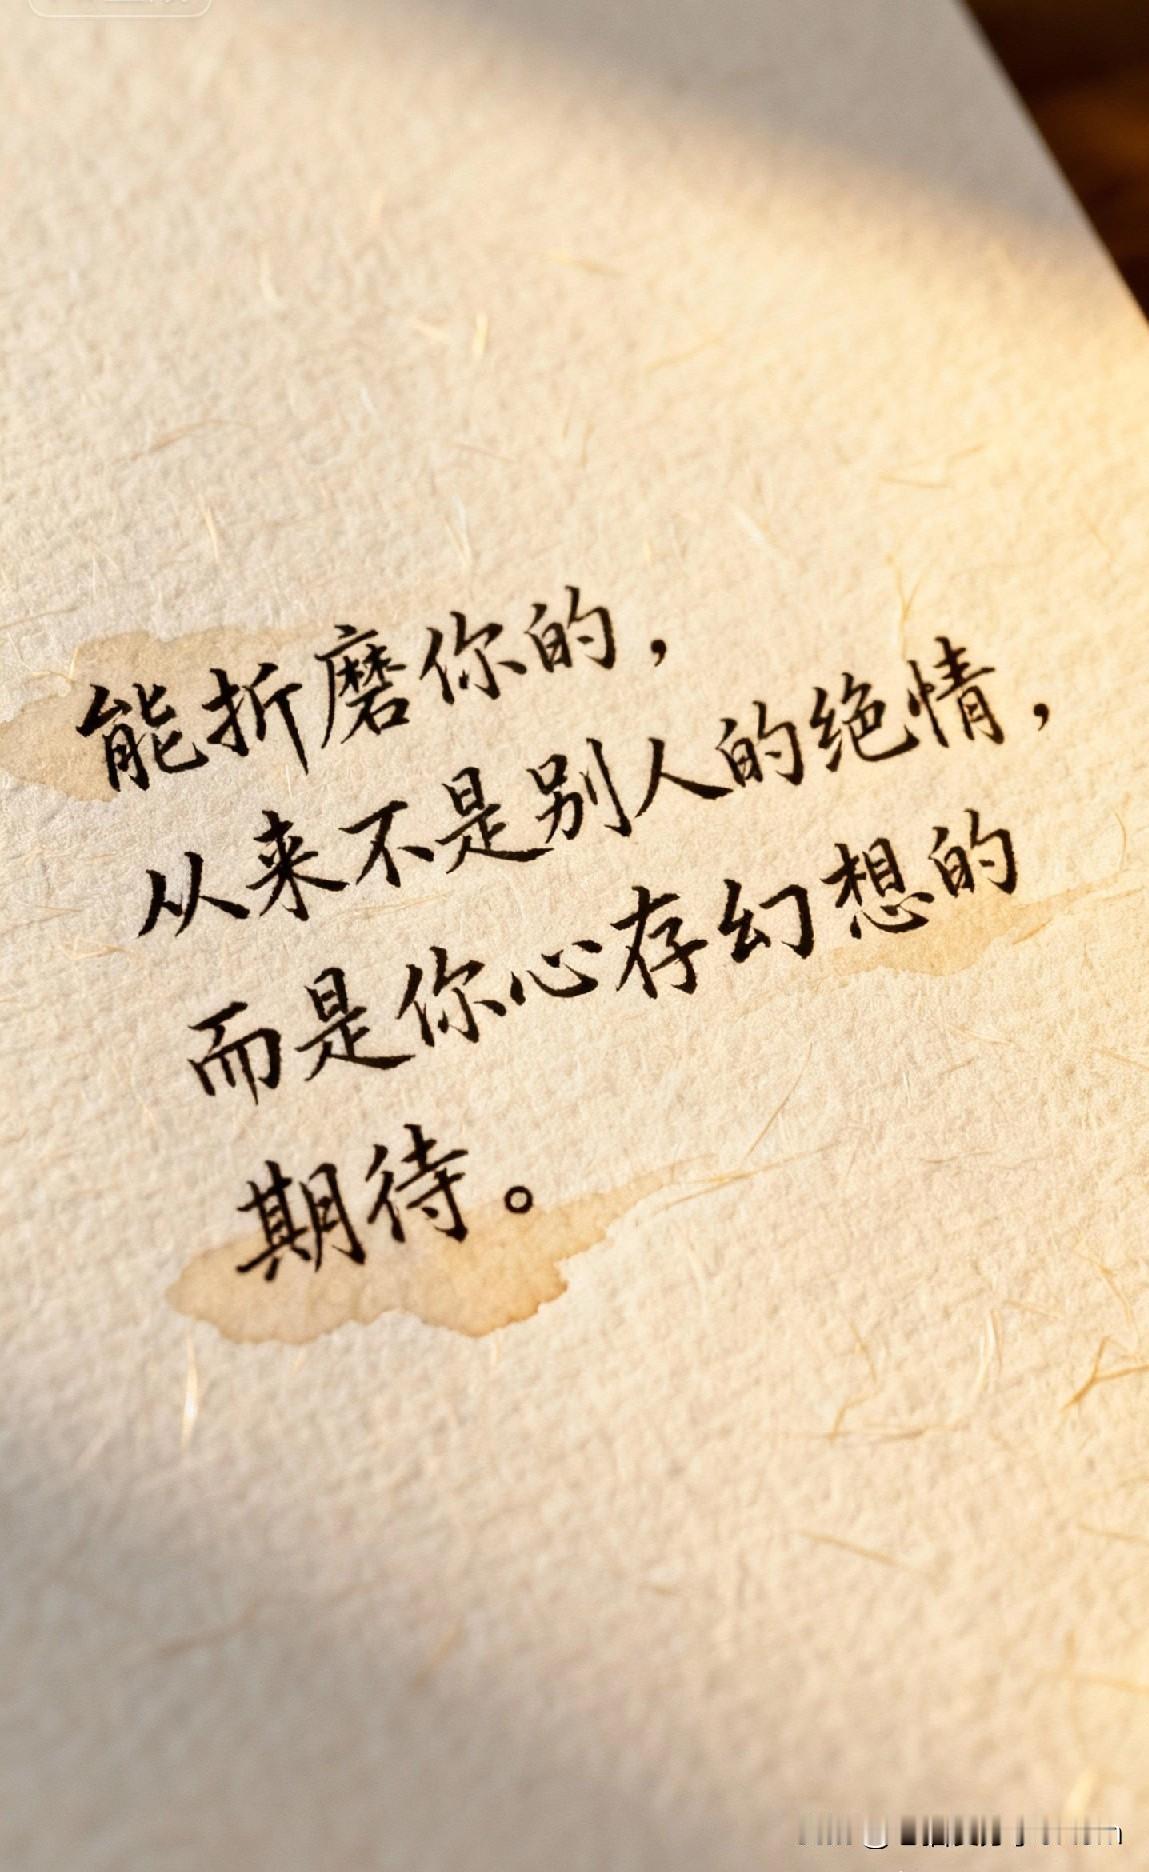 能折磨你的，
从来不是别人的绝情，
而是你心存幻想的
期待。